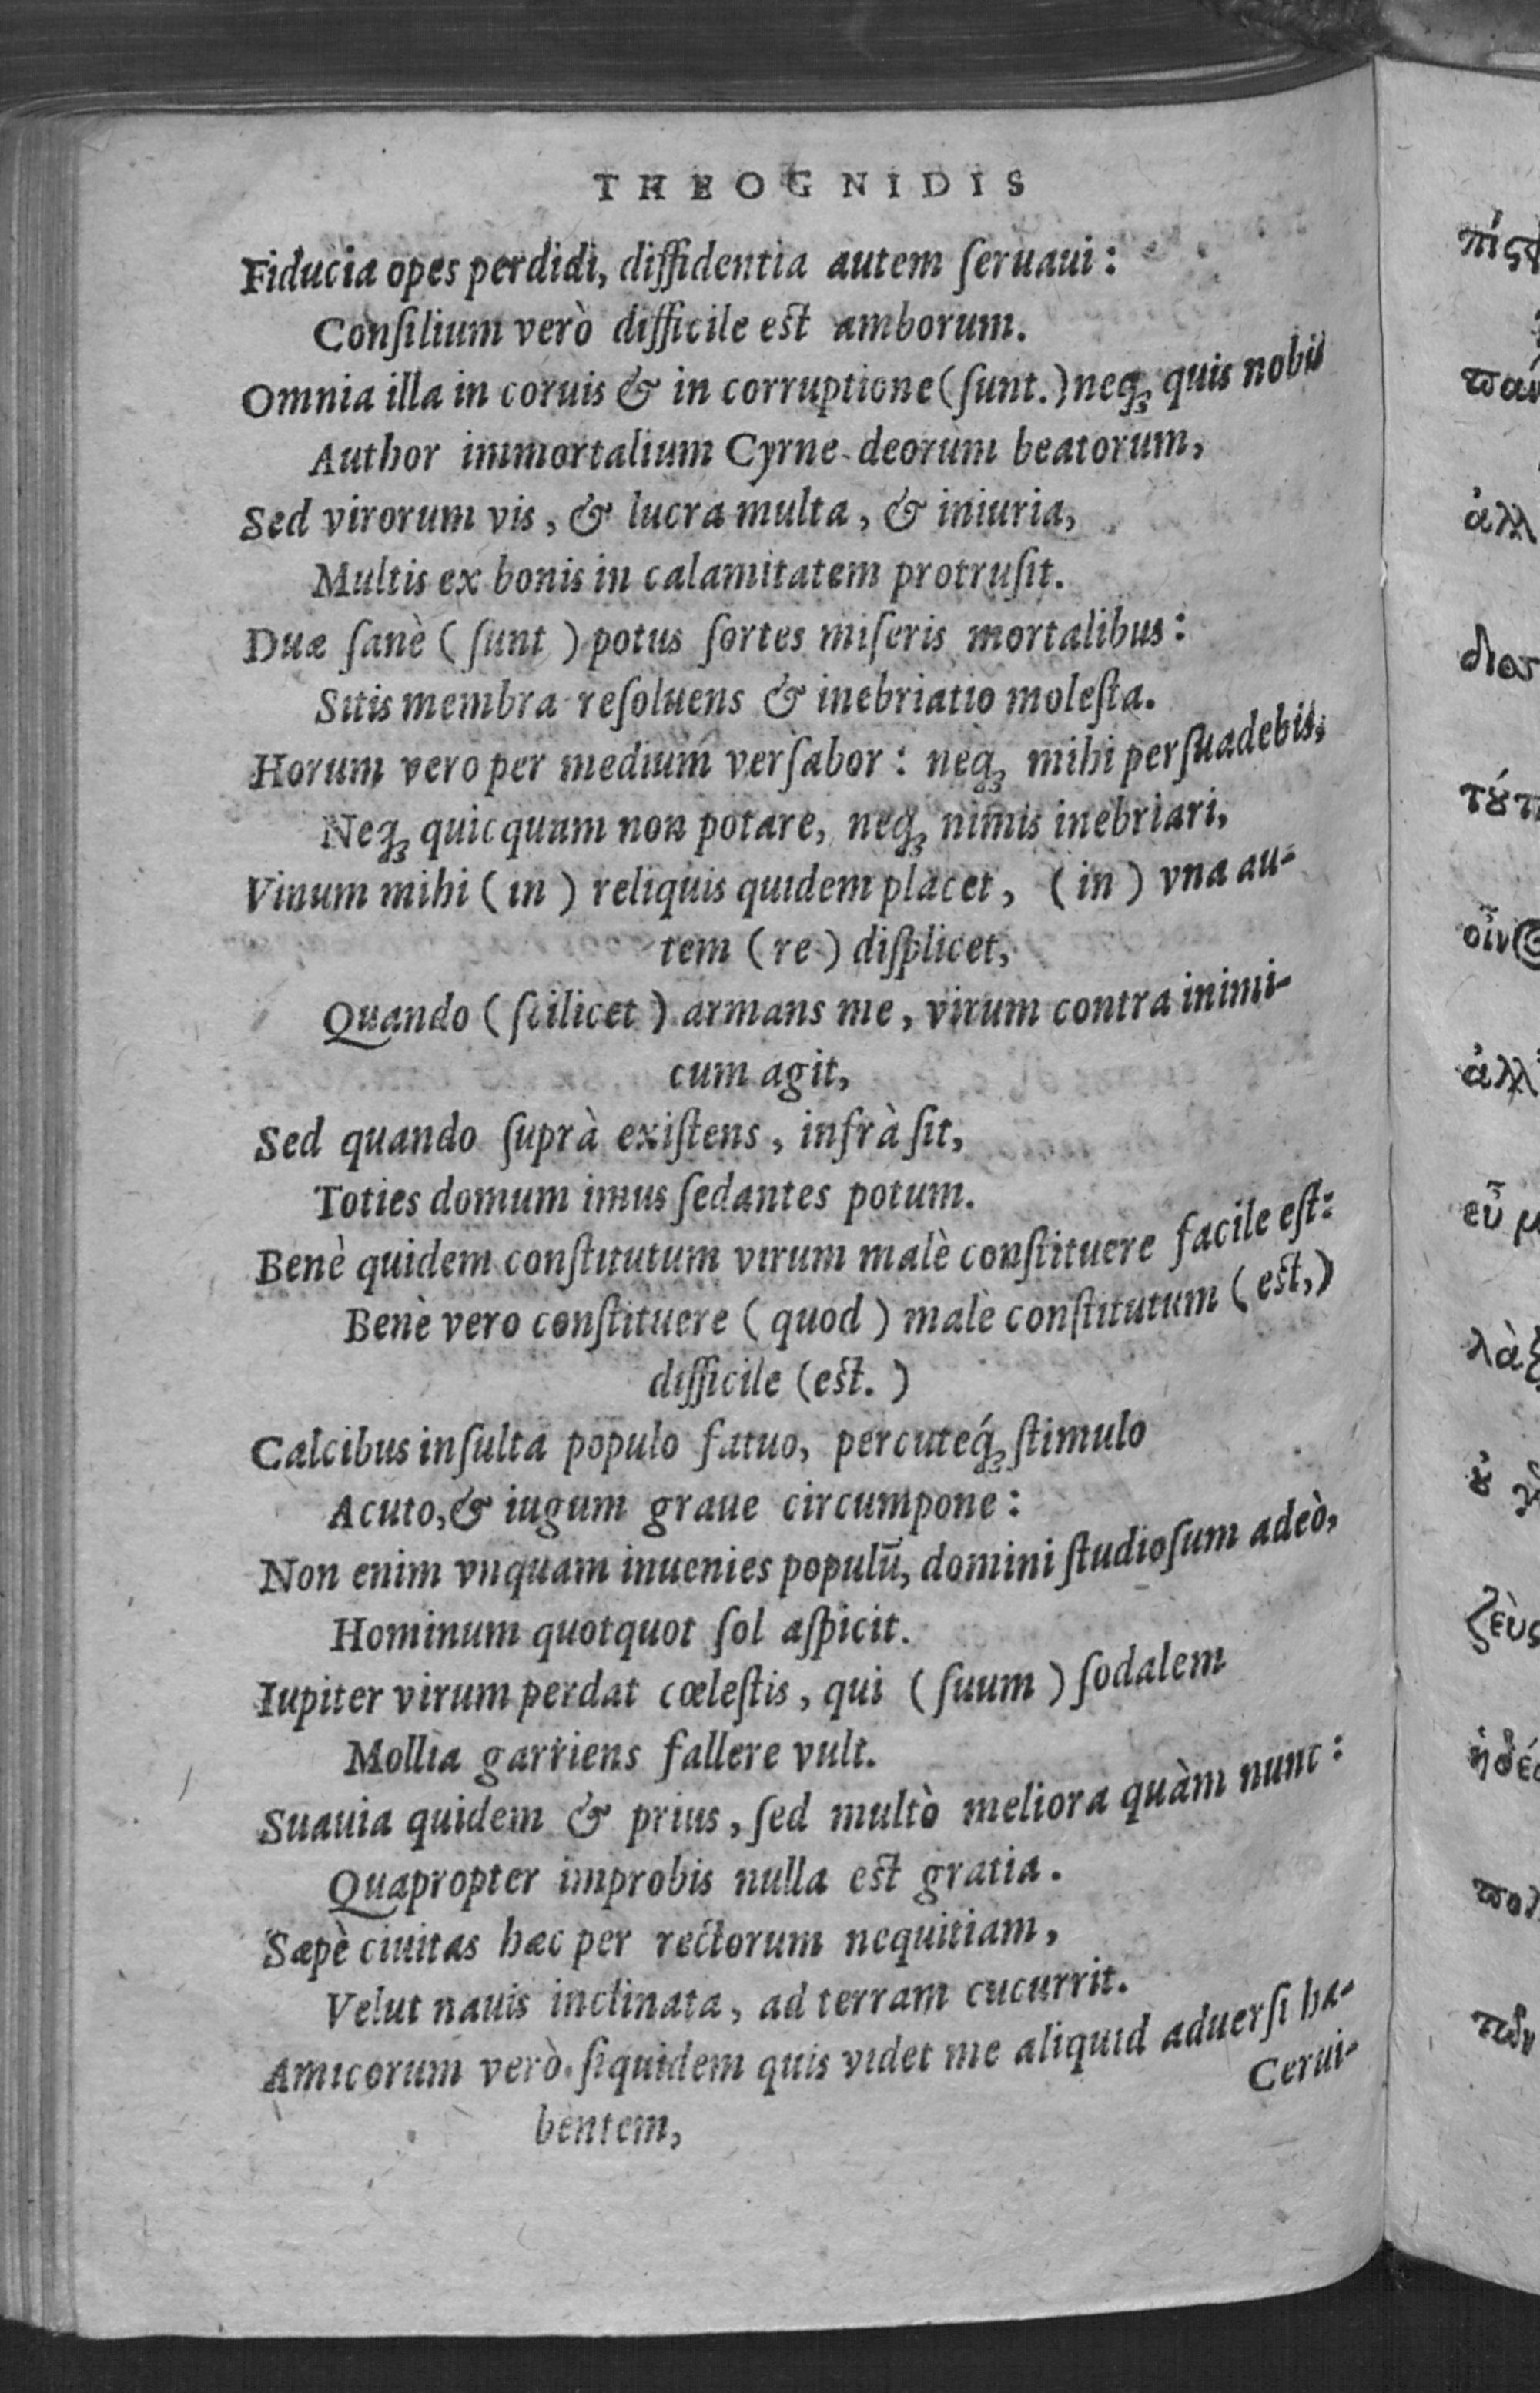 THEOGNIDIS
Fiducia opes perdidi, diffidentia autem ſeruaui:
Conſilium verò difficile est amborum.
Omnia illa in coruis & in corruptione (ſunt.) neq; quis nobis
Author immortalium Cyrne deorum beatorum,
Sed virorum vis, & lucra multa, & iniuria,
Multis ex bonis in calamitatem protruſit.
Duæ ſanè (ſunt) potus ſortes miſeris mortalibus:
Sitis membra reſoluens & inebriatio moleſta.
Horum vero per medium verſabor: neq; mihi perſuadebis,
Neq; quicquam non potare, neq; nimis inebriari,
Vinum mihi (in) reliquis quidem placet, (in) vna au-
tem (re) diſplicet,
Quando (ſcilicet) armans me, virum contra inimi-
cum agit,
Sed quando ſuprà exiſtens, infrà ſit,
Toties domum imus ſedantes potum.
Benè quidem conſtitutum virum malè conſtituere facile eſt:
Benè vero conſtituere (quod) malè conſtitutum (est,)
difficile (est.)
Calcibus inſulta populo fatuo, percuteq́; ſtimulo
Acuto, & iugum graue circumpone:
Non enim vnquam inuenies populū, domini ſtudioſum adeò,
Hominum quotquot ſol aſpicit.
Iupiter virum perdat cœleſtis, qui (ſuum) ſodalem
Mollia garriens fallere vult.
Suauia quidem & prius, ſed multò meliora quàm nunc:
Quapropter improbis nulla est gratia.
Sæpè ciuitas hæc per rectorum nequitiam,
Velut nauis inclinata, ad terram cucurrit.
Amicorum verò ſiquidem quis videt me aliquid aduerſi ha-
bentem,
Cerui-
πίς
παν
ἀλλ
τȣ́π
οἶν
ἀλλ
εὖ μ
λὰξ
ζεὺς
ἡδέα
πολ